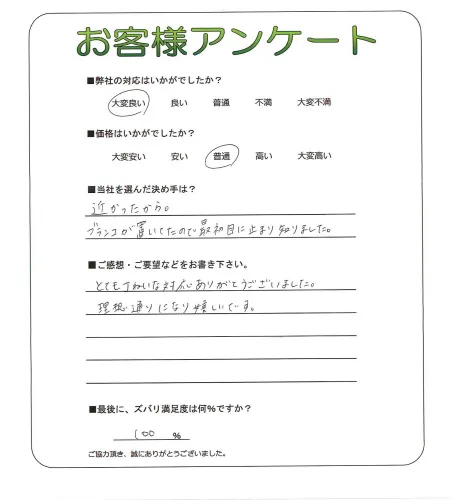 お客様アンケート
■弊社の対応はいかがでしたか？
大変良い 良い 普通 不満 大変不満
■価格はいかがでしたか？
大変安い 安い 普通 高い 大変高い
■当社を選んだ決め手は？
近かったから。
ブランコが置いてたので最初目に止まり知りました。
■ご感想・ご要望などをお書き下さい。
とても丁ねいな対応ありがとうございました。
理想通りになり嬉しいです。
■最後に、ズバリ満足度は何％ですか？
100 ％
ご協力頂き、誠にありがとうございました。